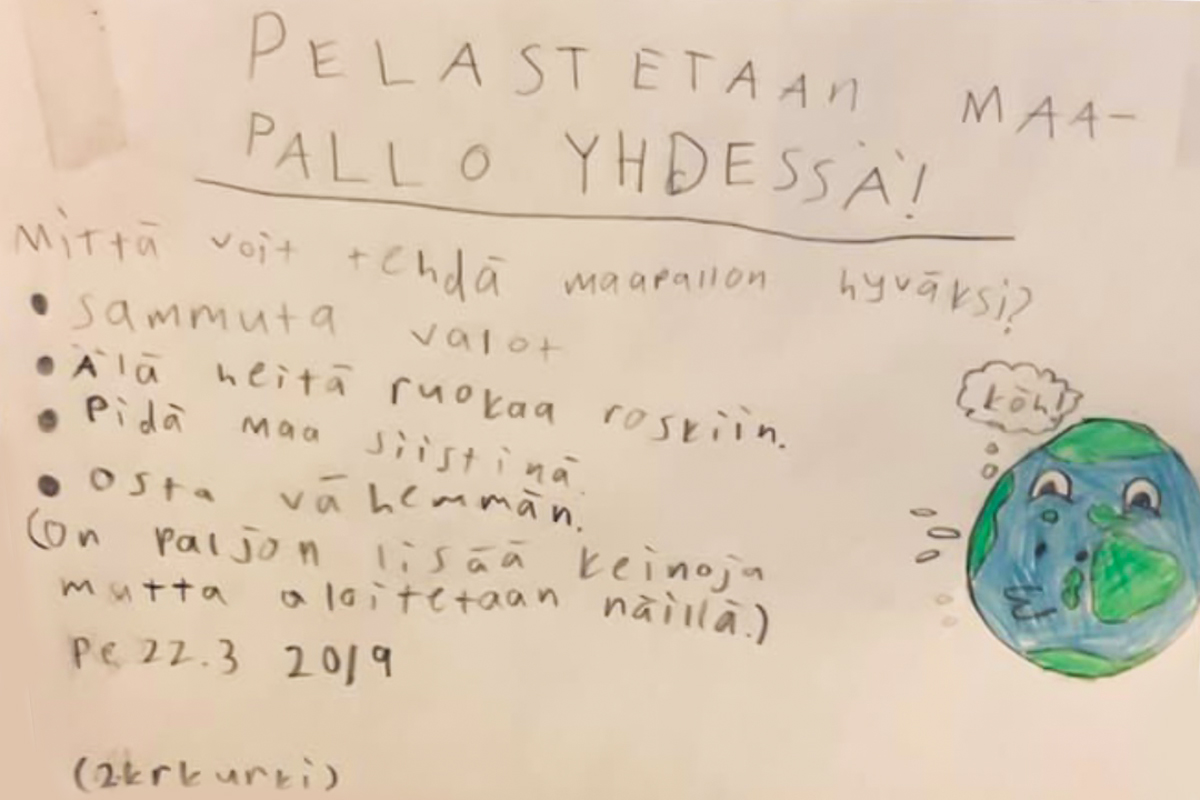 PELASTETAAN MAA-
PALLO YHDESSÄ!
Mittä voit tehdä maapallon hyväksi?
• sammuta valot
• Älä heitä ruokaa roskiin.
• Pidä maa siistinä.
• osta vähemmän.
(on paljon lisää keinoja
mutta aloitetaan näillä.)
pe 22.3 2019
(2krkurki)
köh!